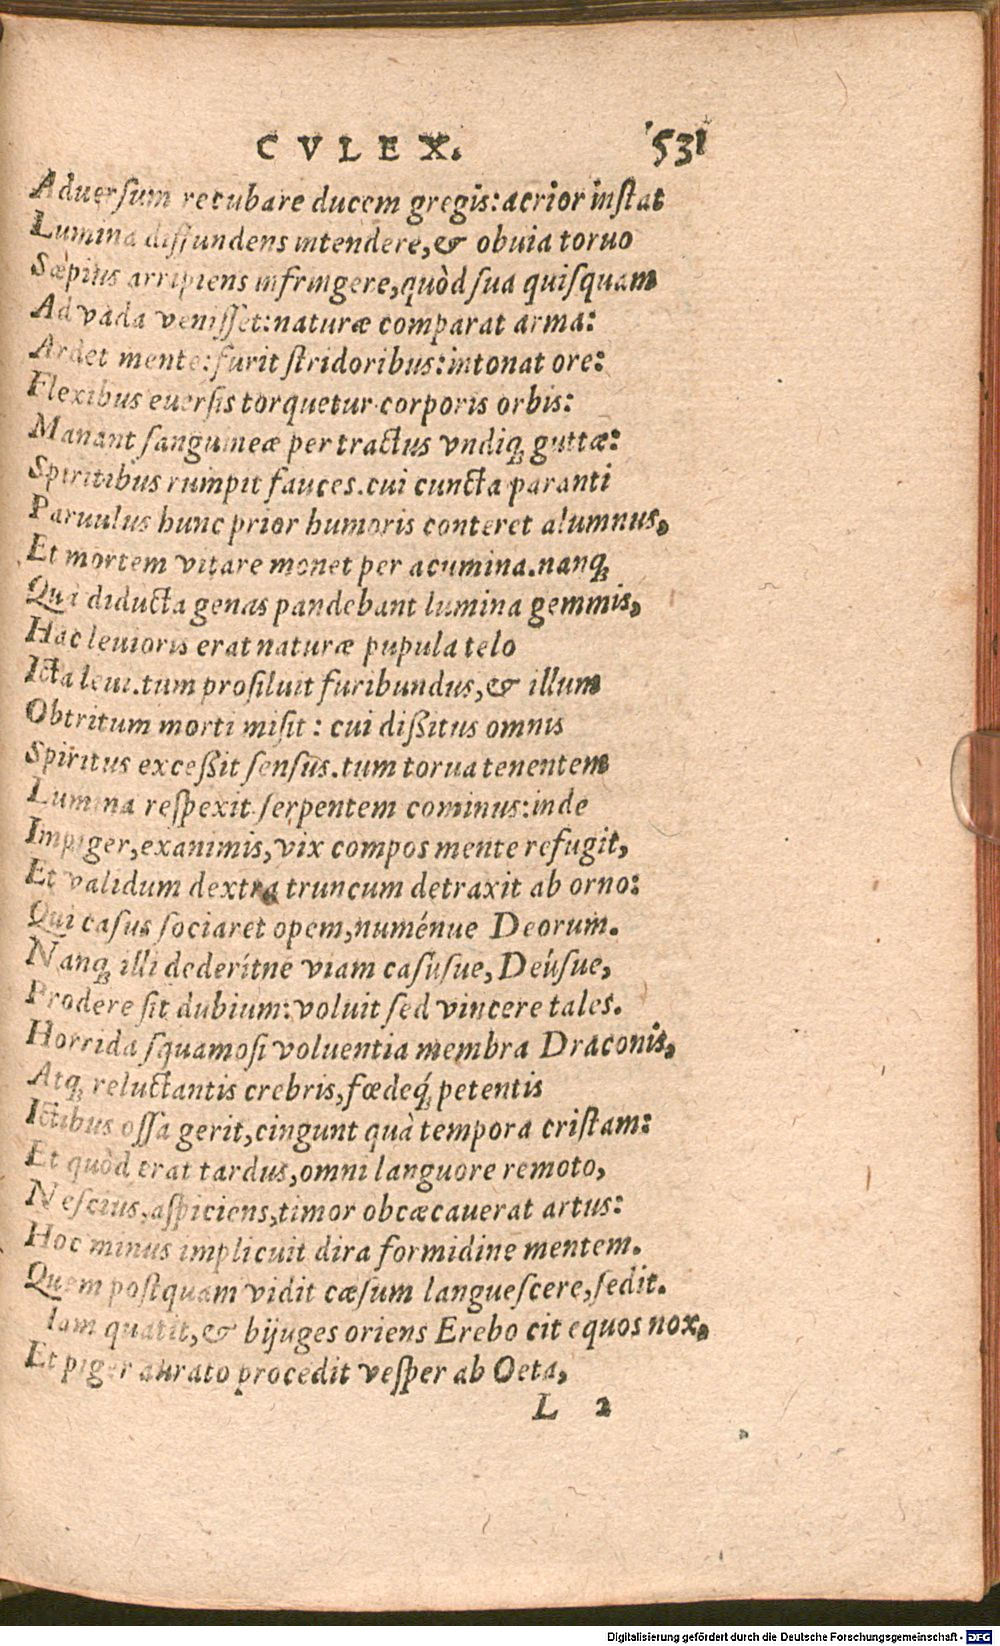 CVLEX. 531
Aduersum recubare ducem gregis: acrior instat
Lumina diffundens intendere, & obuia toruo
Sæpius arripiens infringere, quòd sua quisquam
Ad vada venisset: naturæ comparat arma:
Ardet mente: furit stridoribus: intonat ore:
Flexibus euersis torquetur corporis orbis:
Manant sanguineæ per tractus vndiq; guttæ:
Spiritibus rumpit fauces. cui cuncta paranti
Paruulus hunc prior humoris conteret alumnus,
Et mortem vitare monet per acumina. nanq;
Qui diducta genas pandebant lumina gemmis,
Hac leuioris erat naturæ pupula telo
Icta leui. tum prosiluit furibundus, & illum
Obtritum morti misit: cui dißitus omnis
Spiritus exceßit sensus. tum torua tenentem
Lumina respexit serpentem cominus: inde
Impiger, exanimis, vix compos mente refugit,
Et validum dextra truncum detraxit ab orno:
Qui casus sociaret opem, numénue Deorum.
Nanq; illi dederítne viam casúsue, Deúsue,
Prodere sit dubium: voluit sed vincere tales.
Horrida squamosi voluentia membra Draconis,
Atq; reluctantis crebris, fœdeq́; petentis
Ictibus ossa gerit, cingunt quà tempora cristam:
Et quòd erat tardus, omni languore remoto,
Nescius, aspiciens, timor obcæcauerat artus:
Hoc minus implicuit dira formidine mentem.
Quem postquam vidit cæsum languescere, sedit.
Iam quatit, & bijuges oriens Erebo cit equos nox,
Et piger aurato procedit vesper ab Oeta,
L 2
Digitalisierung gefördert durch die Deutsche Forschungsgemeinschaft - DFG